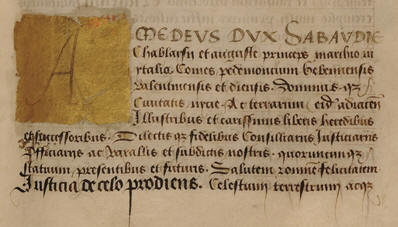 AMEDEUS DUX SABAUDIE
Chablasii et auguste princeps marchio in
ytalia Comes pedemoncium Gebennensis
Valentinensis et diensis. Dominus qz
Civitatis nycie Ac terrarum eid adiacen
Illustribus et carissimis liberis heredibus
et successoribus. Dilectis qz fidelibus Consiliariis Justiciariis
Officiariis ac Vassallis et subdictis nostris. quorumcunqz
statuum, presentibus et futuris. Salutem felicitatem
Justicia de celo prodiens. Celestium terrestrium atqz